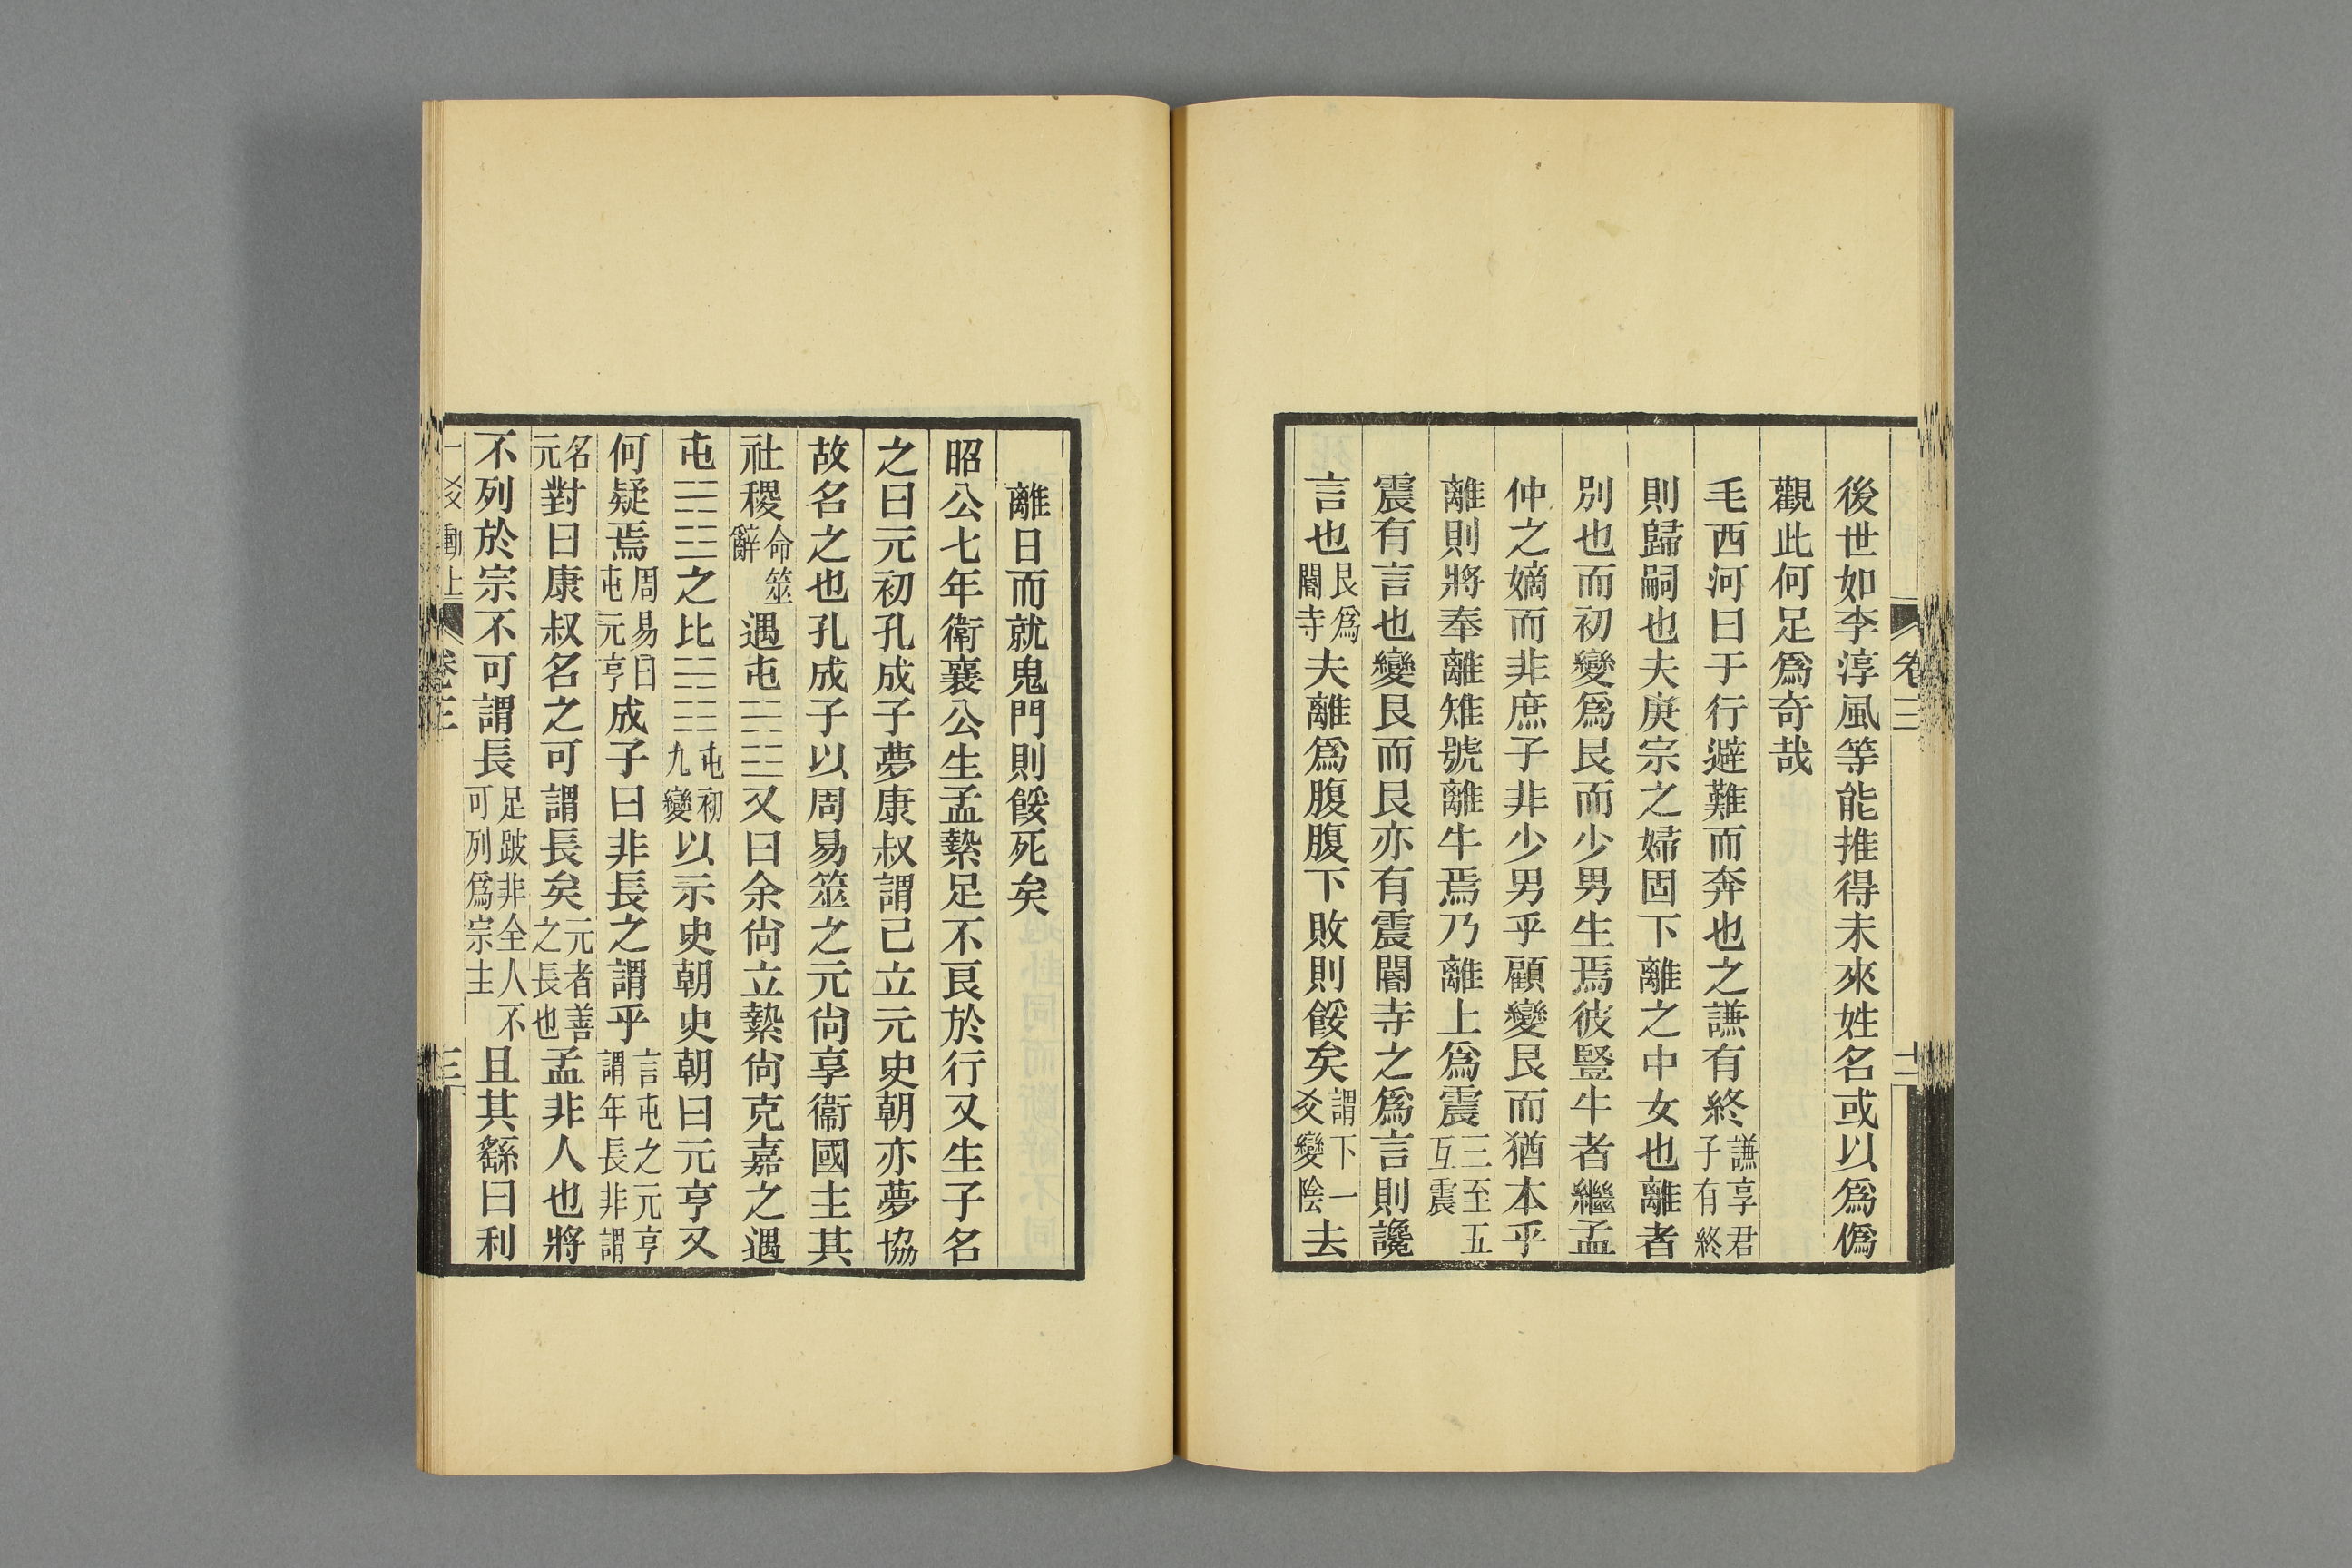 卷三 十二
後世如李淳風等能推得未來姓名或以爲僞
觀此何足爲奇哉
毛西河曰于行避難而奔也之謙有終謙享君子有終
則歸嗣也夫庚宗之婦固下離之中女也離者
別也而初變爲艮而少男生焉彼豎牛者繼孟
仲之嫡而非庶子非少男乎顧變艮而猶本乎
離則將奉離雉號離牛焉乃離上爲震三至五互震
震有言也變艮而艮亦有震閽寺之爲言則讒
言也艮爲閽寺夫離爲腹腹下敗則餒矣謂下一爻變陰去
離日而就鬼門則餒死矣
昭公七年衛襄公生孟縶足不良於行又生子名
之曰元初孔成子夢康叔謂己立元史朝亦夢協
故名之也孔成子以周易筮之元尚享衞國主其
社稷命筮辭遇屯䷂又曰余尚立縶尚克嘉之遇
屯䷂之比䷇屯初九變以示史朝史朝曰元亨又
何疑焉周易曰屯元亨成子曰非長之謂乎言屯之元亨謂年長非謂
名元對曰康叔名之可謂長矣元者善之長也孟非人也將
不列於宗不可謂長足跛非全人不可列爲宗主且其繇曰利
一爻動上 卷三